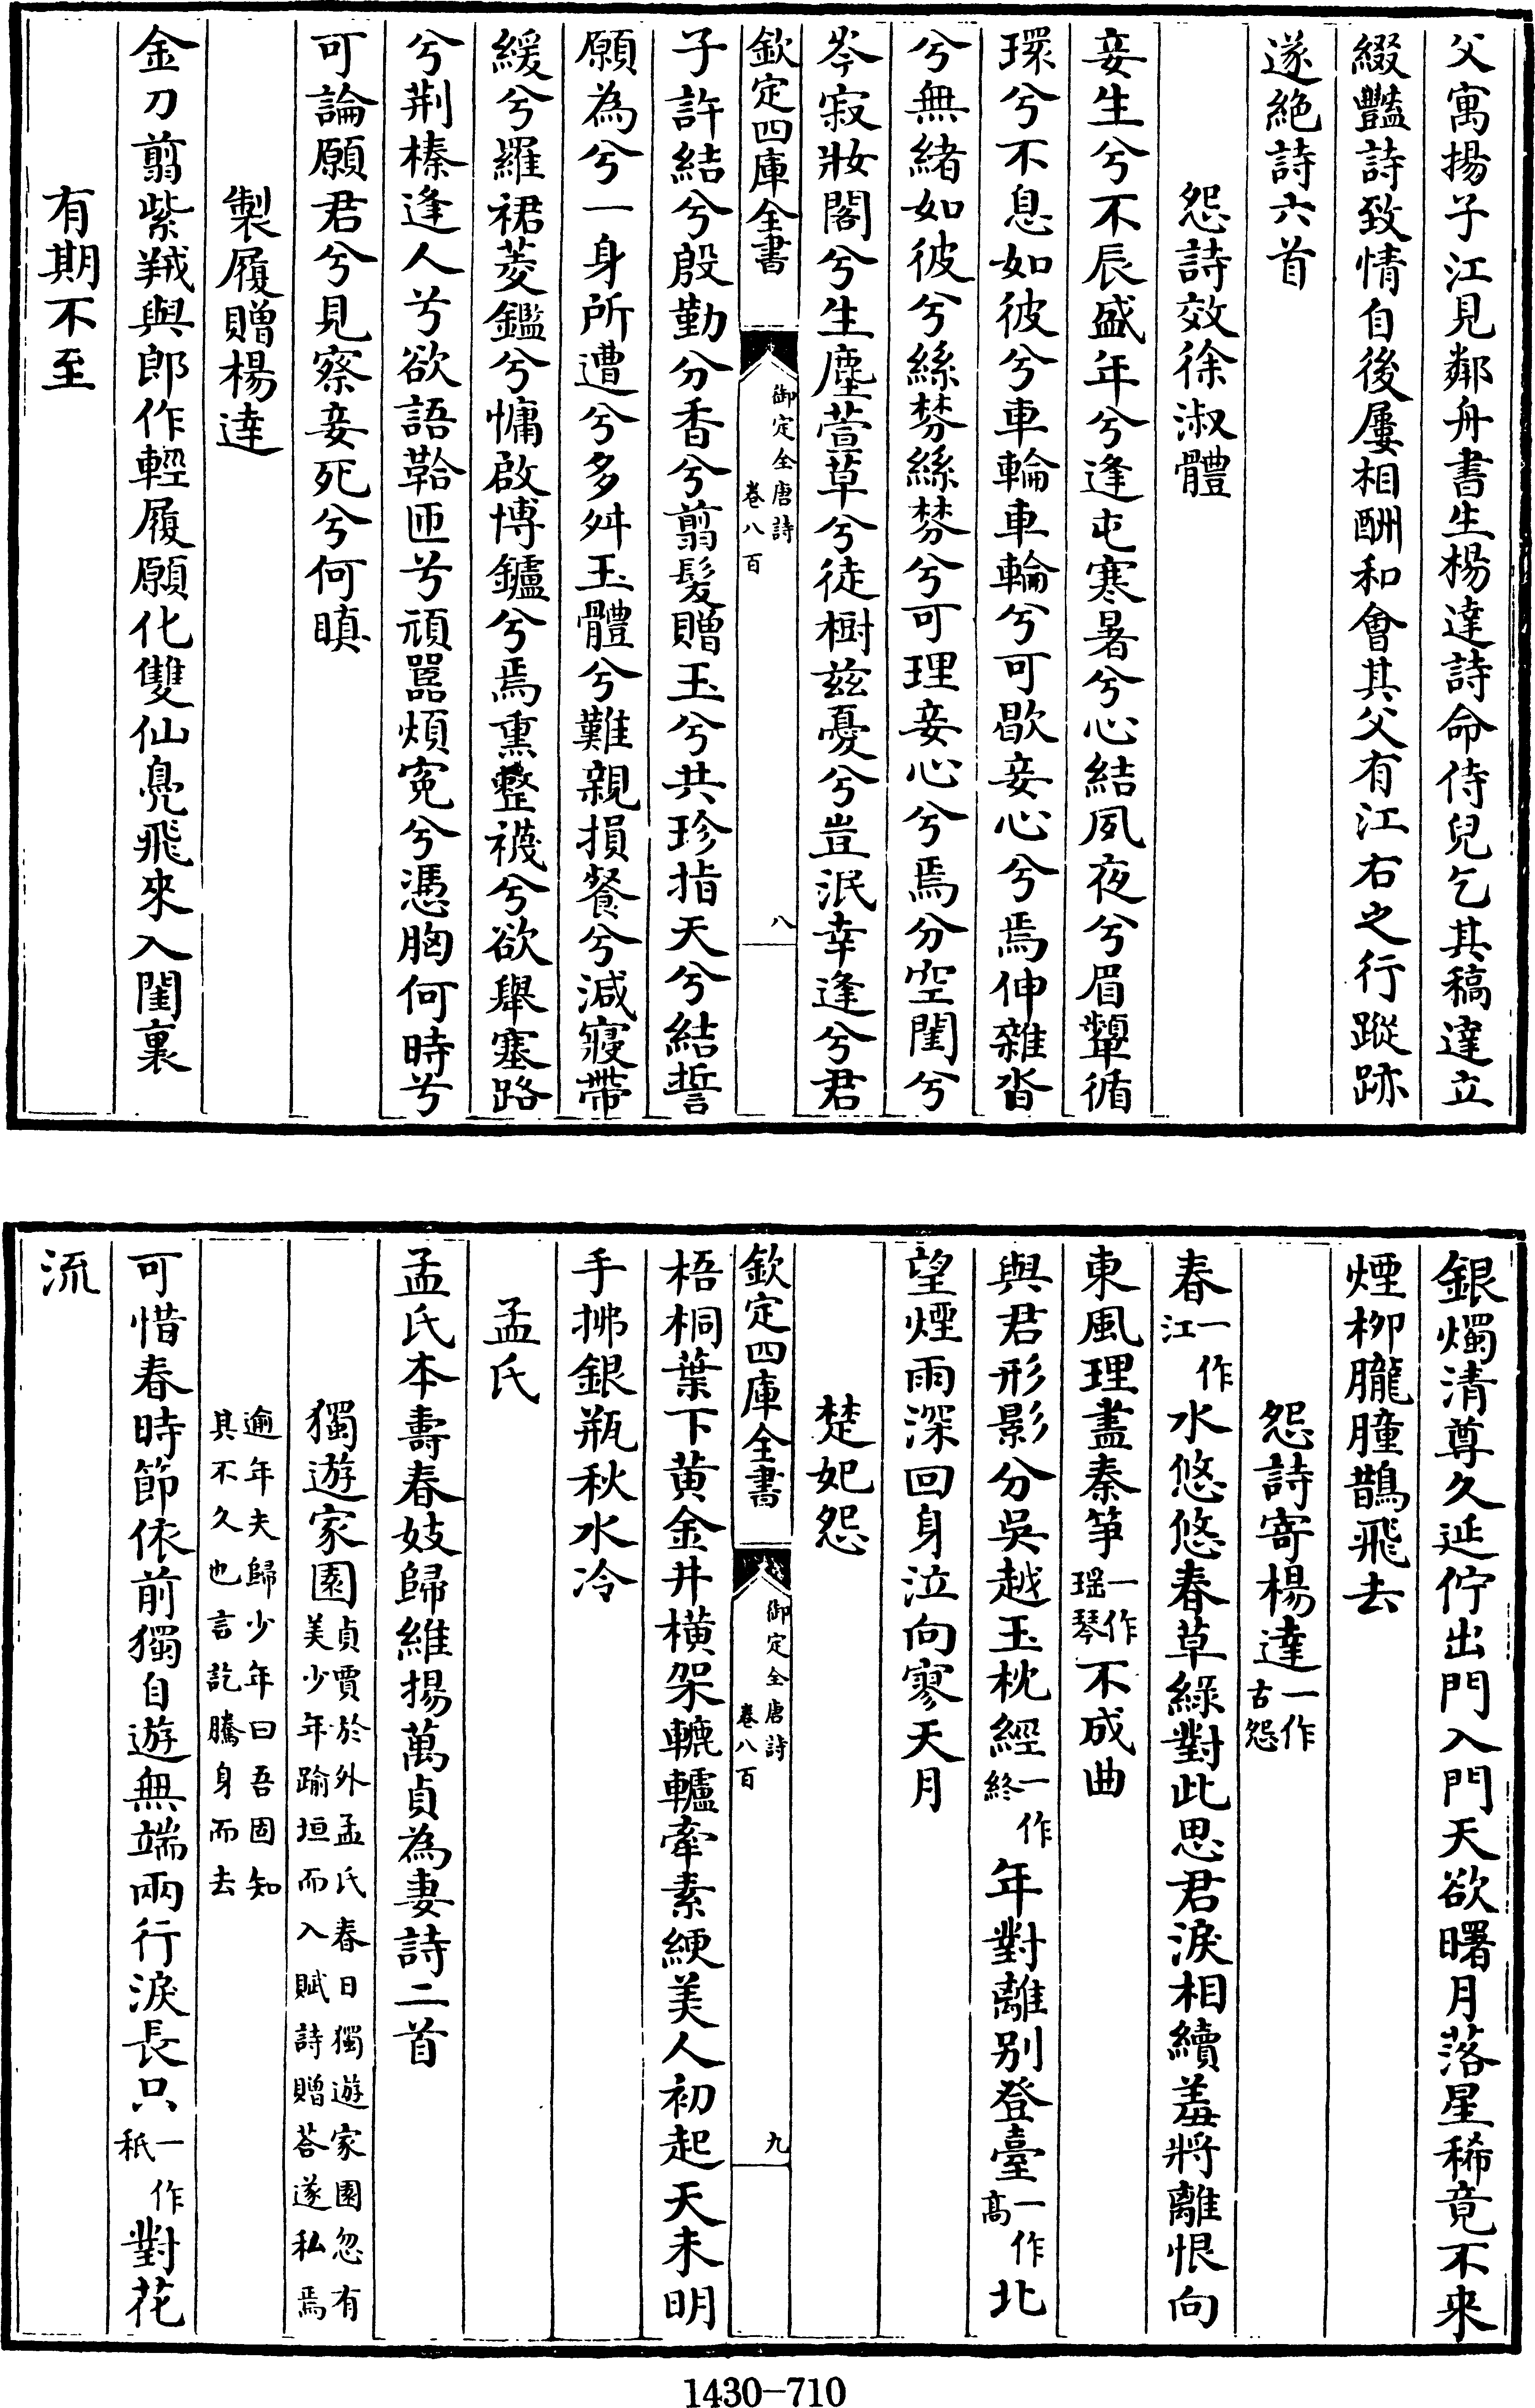 父寓揚子江見鄰舟書生楊達詩命侍兒乞其稿達立
綴豔詩致情自後屢相酬和會其父有江右之行蹤跡
遂絶詩六首
怨詩效徐淑體
妾生兮不辰盛年兮逢屯寒暑兮心結夙夜兮眉顰循
環兮不息如彼兮車輪車輪兮可歇妾心兮焉伸雜沓
兮無緒如彼兮絲棼絲棼兮可理妾心兮焉分空閨兮
岑寂妝閣兮生塵萱草兮徒樹兹憂兮豈泯幸逢兮君
欽定四庫全書
御定全唐詩
卷八百
八
子許結兮殷勤分香兮剪髮贈玉兮共珍指天兮結誓
願為兮一身所遭兮多舛玉體兮難親損餐兮減寢帶
緩兮羅裙菱鑑兮慵啟博鑪兮焉熏整襪兮欲舉塞路
兮荆榛逢人兮欲語鞈匝兮頑嚚煩寃兮憑胸何時兮
可論願君兮見察妾死兮何瞋
製履贈楊達
金刀剪紫羢與郎作輕履願化雙仙鳧飛來入閨裏
有期不至
銀燭清尊久延佇出門入門天欲曙月落星稀竟不來
煙柳朧朣鵲飛去
怨詩寄楊達一作古怨
春一作江水悠悠春草綠對此思君淚相續羞將離恨向
東風理盡秦箏一作瑶琴不成曲
與君形影分吳越玉枕經一作終年對離别登臺一作高北
望煙雨深回身泣向寥天月
楚妃怨
欽定四庫全書
御定全唐詩
卷八百
九
梧桐葉下黄金井横架轆轤牽素綆美人初起天未明
手拂銀瓶秋水冷
孟氏
孟氏本壽春妓歸維揚萬貞為妻詩二首
獨遊家園貞賈於外孟氏春日獨遊家園忽有美少年踰垣而入賦詩贈荅遂私焉
逾年夫歸少年曰吾固知其不久也言訖騰身而去
可惜春時節依前獨自遊無端兩行淚長只一作秖對花
流
1430-710